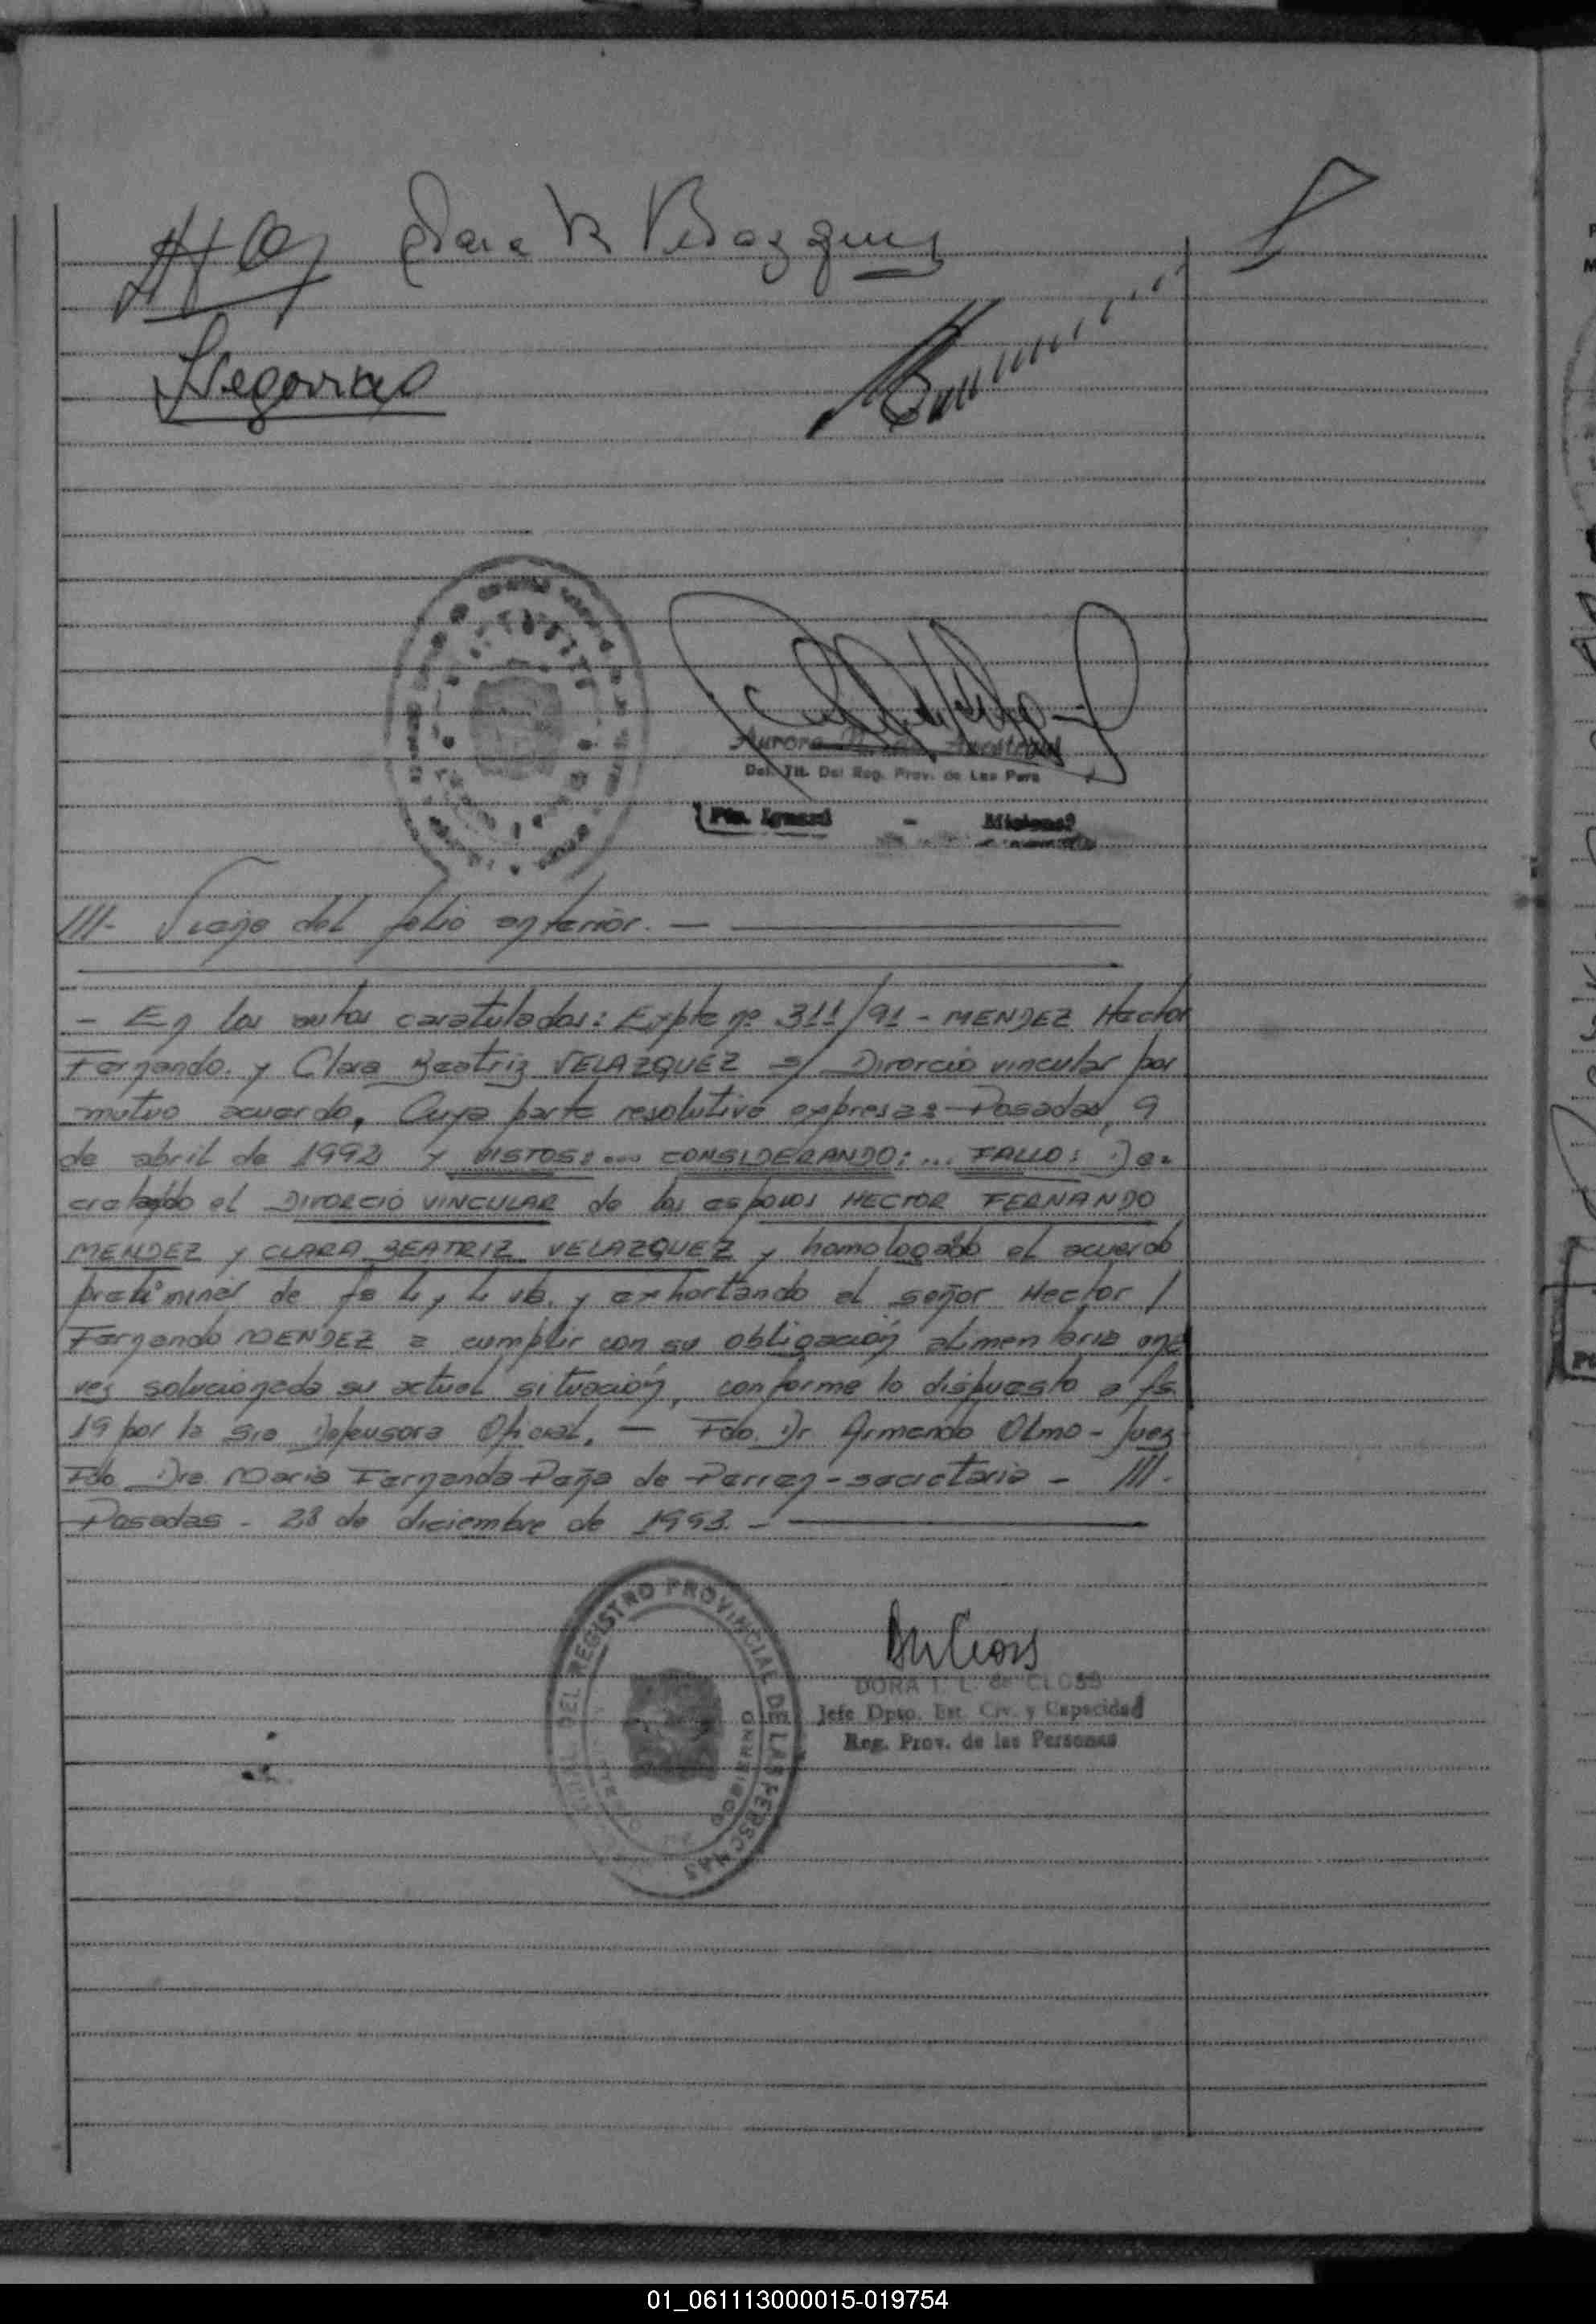 Clara B Velazquez
Segovia
Del. Tit. Del Reg. Prov. de Las Pers
Pto. Iguazú - Misiones
III- Viene del folio anterior. —
- En los autos caratulados: Expte nº 311/91 - MENDEZ Hector
Fernando. y Clara Beatriz VELAZQUEZ s/ Divorcio vincular por
mutuo acuerdo, Cuya parte resolutiva expresa: Posadas, 9
de abril de 1992 y VISTOS:... CONSIDERANDO:... FALLO: De-
cretando el DIVORCIO VINCULAR de los esposos HECTOR FERNANDO
MENDEZ y CLARA BEATRIZ VELAZQUEZ y homologando el acuerdo
preliminar de fs 4 y 4 vta. y exhortando al señor Hector /
Fernando MENDEZ a cumplir con su obligación alimentaria una
vez solucionada su actual situación, conforme lo dispuesto a fs.
19 por la Sra Defensora Oficial. — Fdo. Dr Armando Olmo - Juez
Fdo Dra. Maria Fernanda de - secretaria - III.
Posadas - 28 de diciembre de 1993. -
DEL REGISTRO PROVINCIAL DE LAS PERSONAS
GOBIERNO
DORA I. L. de CLOSS
Jefe Dpto. Est. Civ. y Capacidad
Reg. Prov. de las Personas
01_061113000015-019754